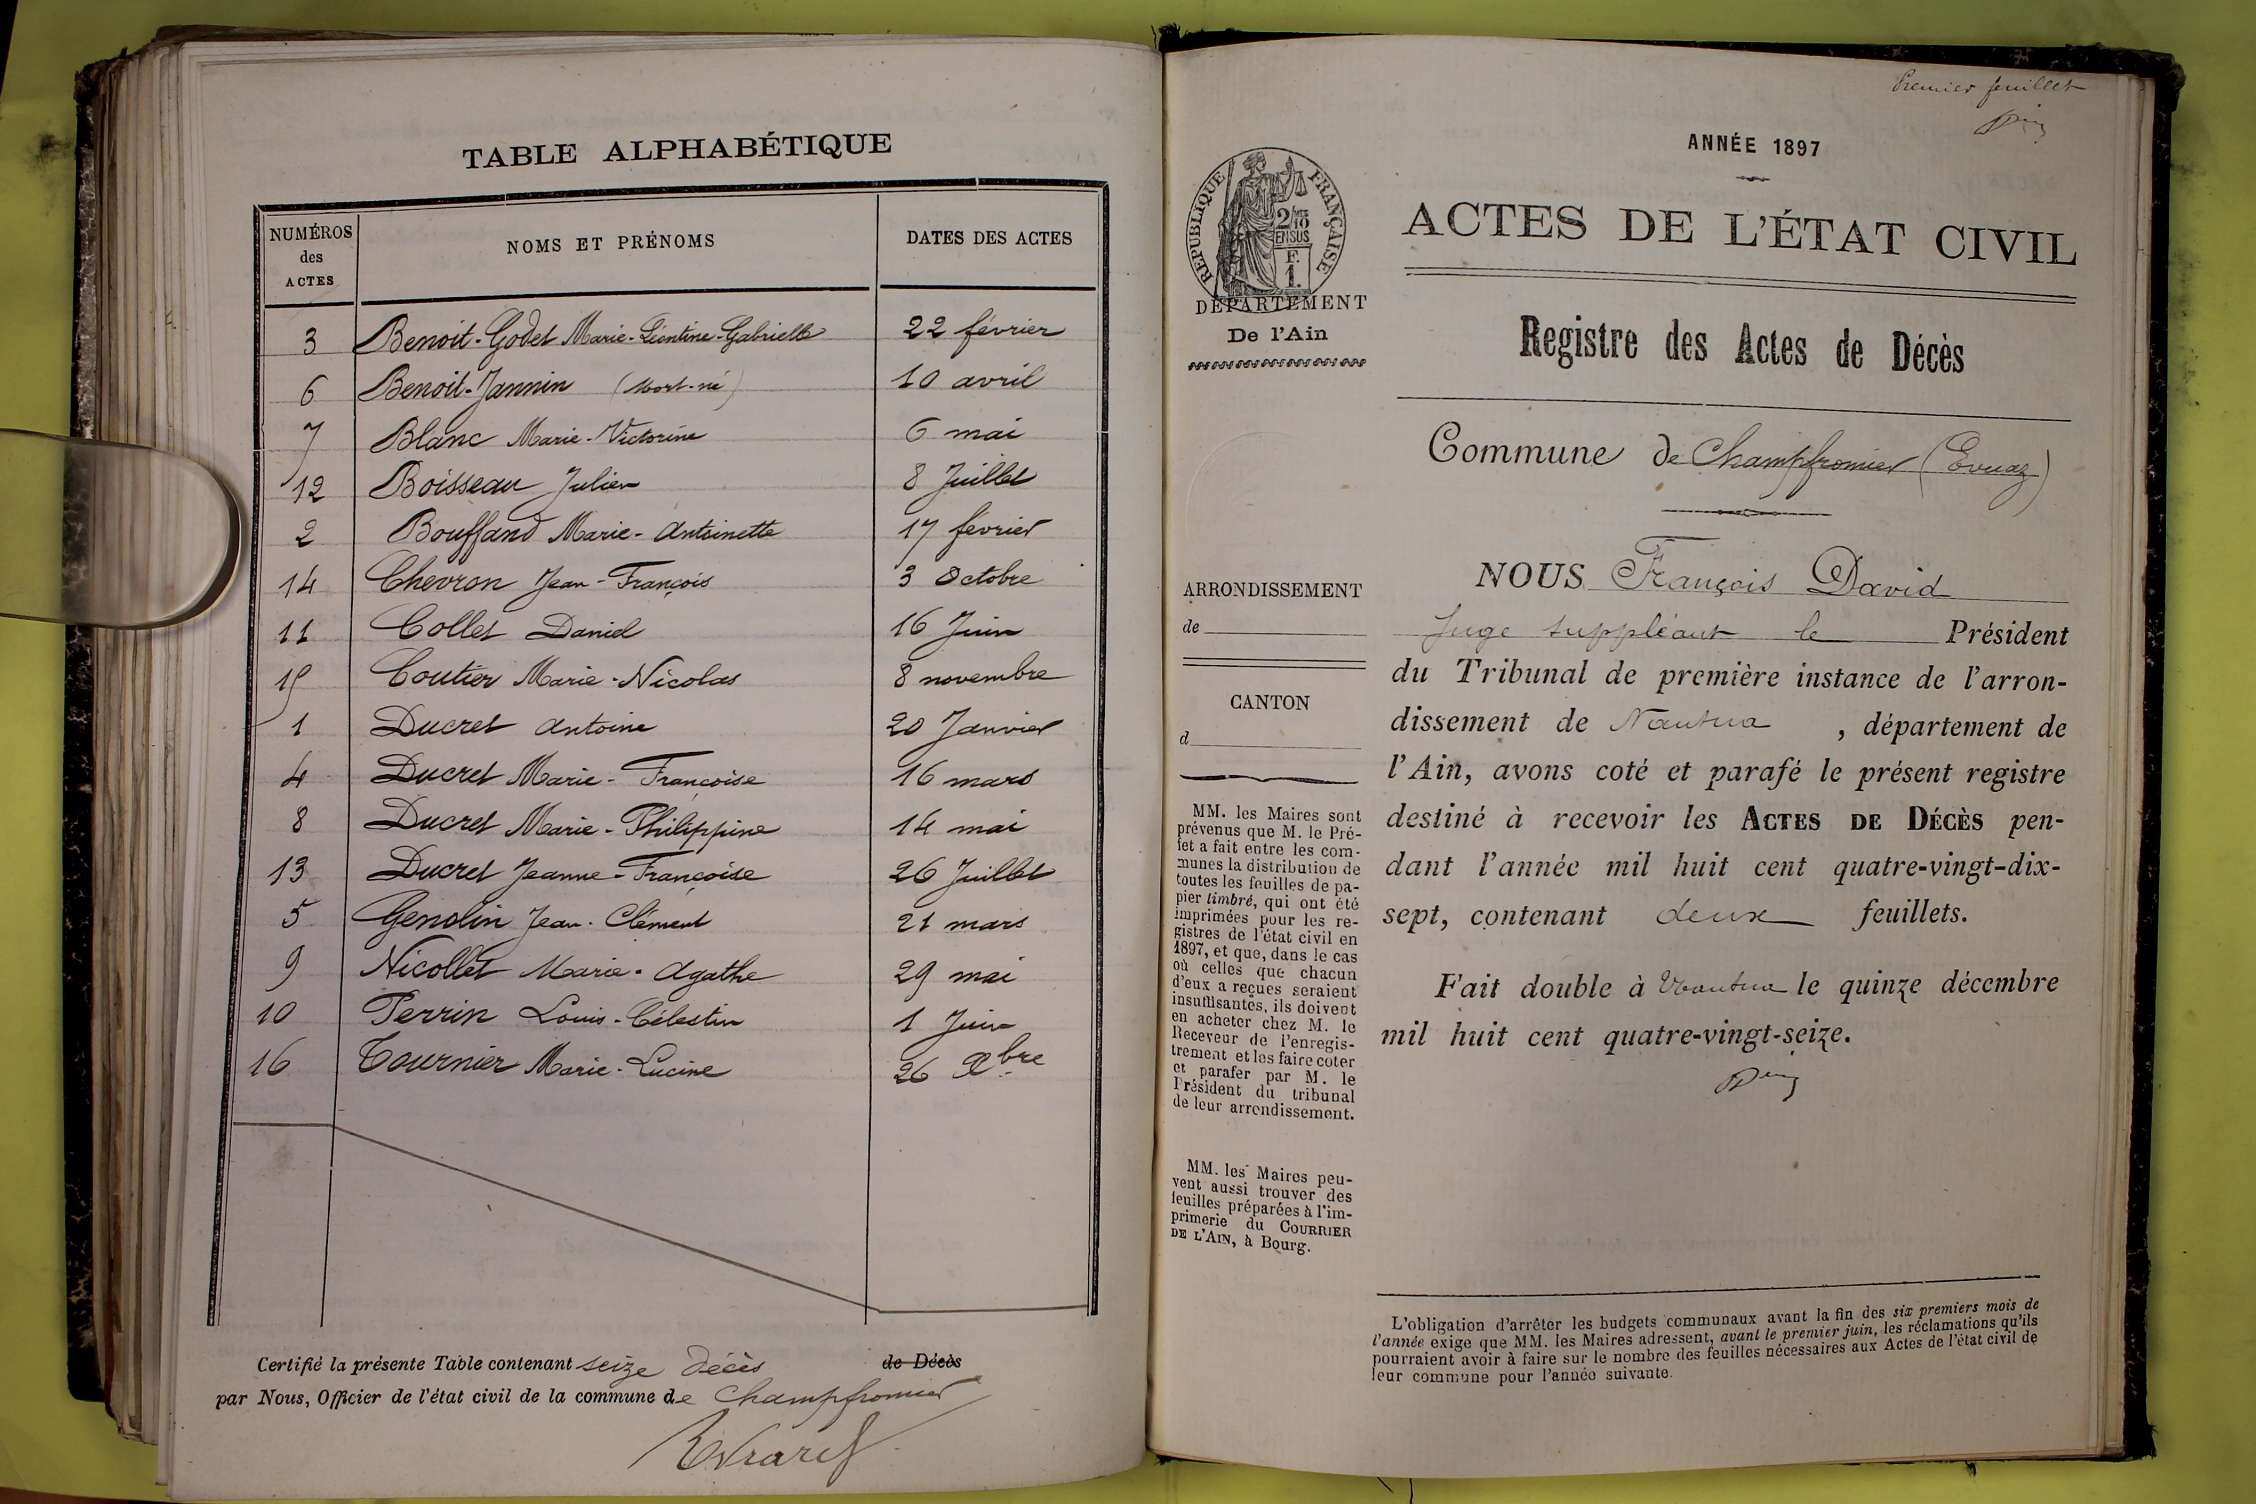 TABLE ALPHABÉTIQUE
NUMÉROS des ACTES NOMS ET PRÉNOMS DATES DES ACTES
3 Benoit-Godet Marie-Léontine-Gabrielle 22 février
6 Benoit-Jannin (Mort-né) 10 avril
7 Blanc Marie-Victorine 6 mai
12 Boisseau Julien 8 Juillet
2 Bouffand Marie-Antoinette 17 février
14 Chevron Jean-François 3 Octobre
11 Collet Daniel 16 Juin
15 Coutier Marie-Nicolas 8 novembre
1 Ducret Antoine 20 Janvier
4 Ducret Marie-Françoise 16 mars
8 Ducret Marie-Philippine 14 mai
13 Ducret Jeanne-Françoise 26 Juillet
5 Genolin Jean-Clément 21 mars
9 Nicollet Marie-Agathe 29 mai
10 Perrin Louis-Célestin 1 Juin
16 Tournier Marie-Lucine 26 Xbre
Certifié la présente Table contenant seize Décès de Décès
par Nous, Officier de l'état civil de la commune de Champfromier
Premier feuillet
ANNÉE 1897
RÉPUBLIQUE FRANÇAISE
2/10
EN SUS
F.
1.
ACTES DE L'ÉTAT CIVIL
DÉPARTEMENT
De l'Ain
Registre des Actes de Décès
Commune de Champfromier (Evuaz)
ARRONDISSEMENT
de
CANTON
d
MM. les Maires sont
prévenus que M. le Pré-
fet a fait entre les com-
munes la distribution de
toutes les feuilles de pa-
pier timbré, qui ont été
imprimées pour les re-
gistres de l'état civil en
1897, et que, dans le cas
où celles que chacun
d'eux a reçues seraient
insuffisantes, ils doivent
en acheter chez M. le
Receveur de l'enregis-
trement et les faire coter
et parafer par M. le
Président du tribunal
de leur arrondissement.
MM. les Maires peu-
vent aussi trouver des
feuilles préparées à l'im-
primerie du COURRIER
DE L'AIN, à Bourg.
NOUS François David
Juge suppléant le Président
du Tribunal de première instance de l'arron-
dissement de Nantua , département de
l'Ain, avons coté et parafé le présent registre
destiné à recevoir les ACTES DE DÉCÈS pen-
dant l'année mil huit cent quatre-vingt-dix-
sept, contenant deux feuillets.
Fait double à Nantua le quinze décembre
mil huit cent quatre-vingt-seize.
L'obligation d'arrêter les budgets communaux avant la fin des six premiers mois de
l'année exige que MM. les Maires adressent, avant le premier juin, les réclamations qu'ils
pourraient avoir à faire sur le nombre des feuilles nécessaires aux Actes de l'état civil de
leur commune pour l'année suivante.